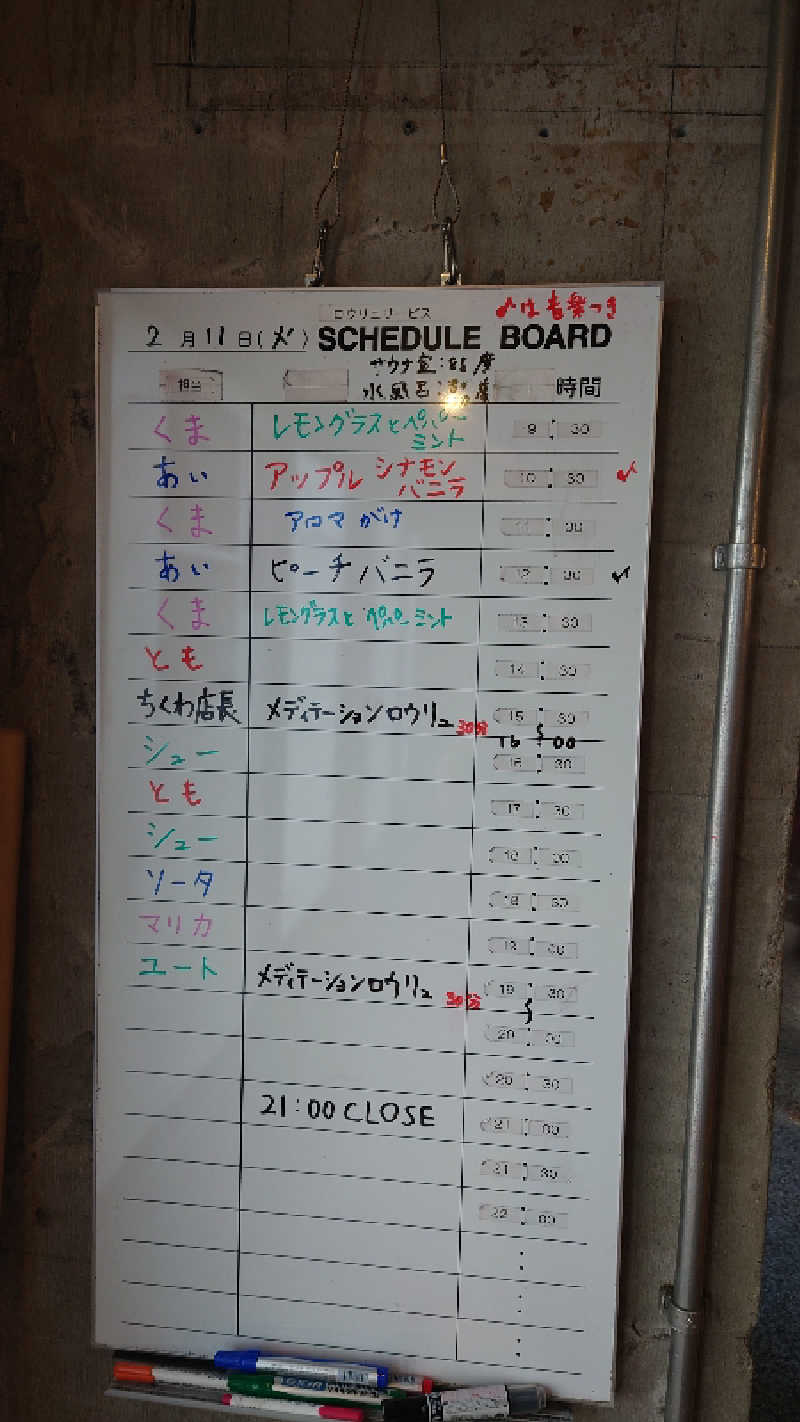 ロウリュサービス
♪は音楽つき
2月11日(火) SCHEDULE BOARD
サウナ室:88度
担当 水風呂: 時間
くま レモングラスとペッパーミント 9:30
あい アップルシナモンバニラ 10:30 ✓
くま アロマがけ
あい ピーチバニラ 12:30 ✓
くま レモングラスとペッパーミント 13:30
とも 14:30
ちくわ店長 メディテーションロウリュ 30分 15:30
〜
16 00
シュー 16:30
とも 17:30
シュー
ソータ
マリカ
ユート メディテーションロウリュ 30分 19:30
〜
20:00
20:30
21:00 CLOSE 21:00
21:30
22:00